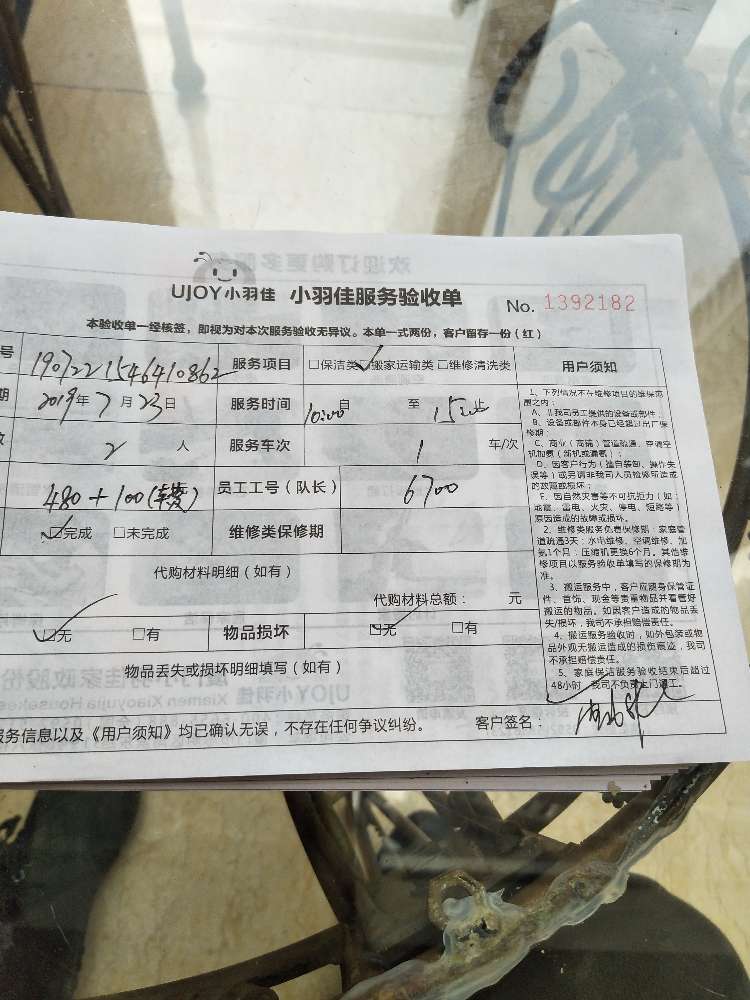 UJOY小羽佳 小羽佳服务验收单 No. 1392182
本验收单一经核签，即视为对本次服务验收无异议。本单一式两份，客户留存一份（红）
号 1907221546410862 服务项目 □保洁类 ☑搬家运输类 □维修清洗类 用户须知
期 2019年7月23日 服务时间 10:00 自 至 15 止
数 2 人 服务车次 1 车/次
480+100 员工工号（队长） 6700
☑完成 □未完成 维修类保修期
代购材料明细（如有）
代购材料总额： 元
☑无 □有 物品损坏 ☑无 □有
物品丢失或损坏明细填写（如有）
服务信息以及《用户须知》均已确认无误，不存在任何争议纠纷。 客户签名：
1、下列情况不在维修项目的维保范
围之内：
A、非我司员工提供的设备或部件；
B、设备或部件本身已经超过出厂保
修期；
C、商业（商铺）管道疏通、空调空
机加氨（新机或漏氨）；
D、因客户行为（擅自装卸、操作失
误等）或另请非我司人员检修所造成
的故障或损坏；
F、因自然灾害等不可抗拒力（如：
地震、雷电、火灾、停电、短路等）
原因造成的故障或损坏。
2、维修类服务免费保修期：家庭管
道疏通3天；水电维修、空调维修、加
氨1个月；压缩机更换6个月。其他维
修项目以服务验收单填写的保修期为
准。
3、搬运服务中，客户应随身保管证
件、首饰、现金等贵重物品并看管好
搬运的物品。如因客户造成的物品丢
失/损坏，我司不承担赔偿责任。
4、搬运服务验收时，如外包装或物
品外观无搬运造成的损伤痕迹，我司
不承担赔偿责任。
5、家庭保洁服务验收结束后超过
48小时，我司不负责上门返工。
欢迎订购更多服务
UJOY小羽佳
Xiamen Xiaoyujia Housekee